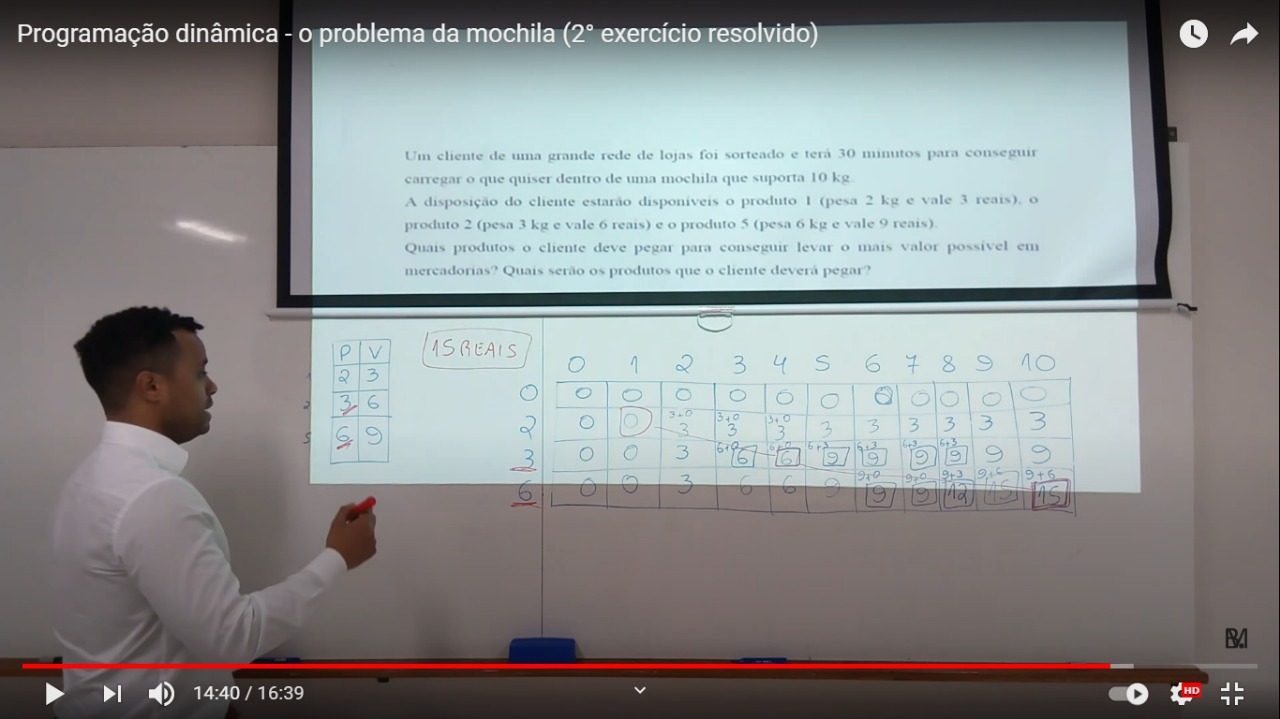 Programação dinâmica - o problema da mochila (2° exercício resolvido)
Um cliente de uma grande rede de lojas foi sorteado e terá 30 minutos para conseguir
carregar o que quiser dentro de uma mochila que suporta 10 kg.
A disposição do cliente estarão disponíveis o produto 1 (pesa 2 kg e vale 3 reais), o
produto 2 (pesa 3 kg e vale 6 reais) e o produto 5 (pesa 6 kg e vale 9 reais).
Quais produtos o cliente deve pegar para conseguir levar o mais valor possível em
mercadorias? Quais serão os produtos que o cliente deverá pegar?
P V
2 3
2 3 6
5 6 9
15 REAIS
0 1 2 3 4 5 6 7 8 9 10
0 0 0 0 0 0 0 0 0 0 0 0
3+0 3+0 3+0
2 0 0 3 3 3 3 3 3 3 3 3
6+0 6+0 6+3 6+3 6+3 6+3
3 0 0 3 6 6 9 9 9 9 9 9
9+0 9+0 9+3 9+6 9+6
6 0 0 3 6 6 9 9 9 12 15 15
14:40 / 16:39
HD